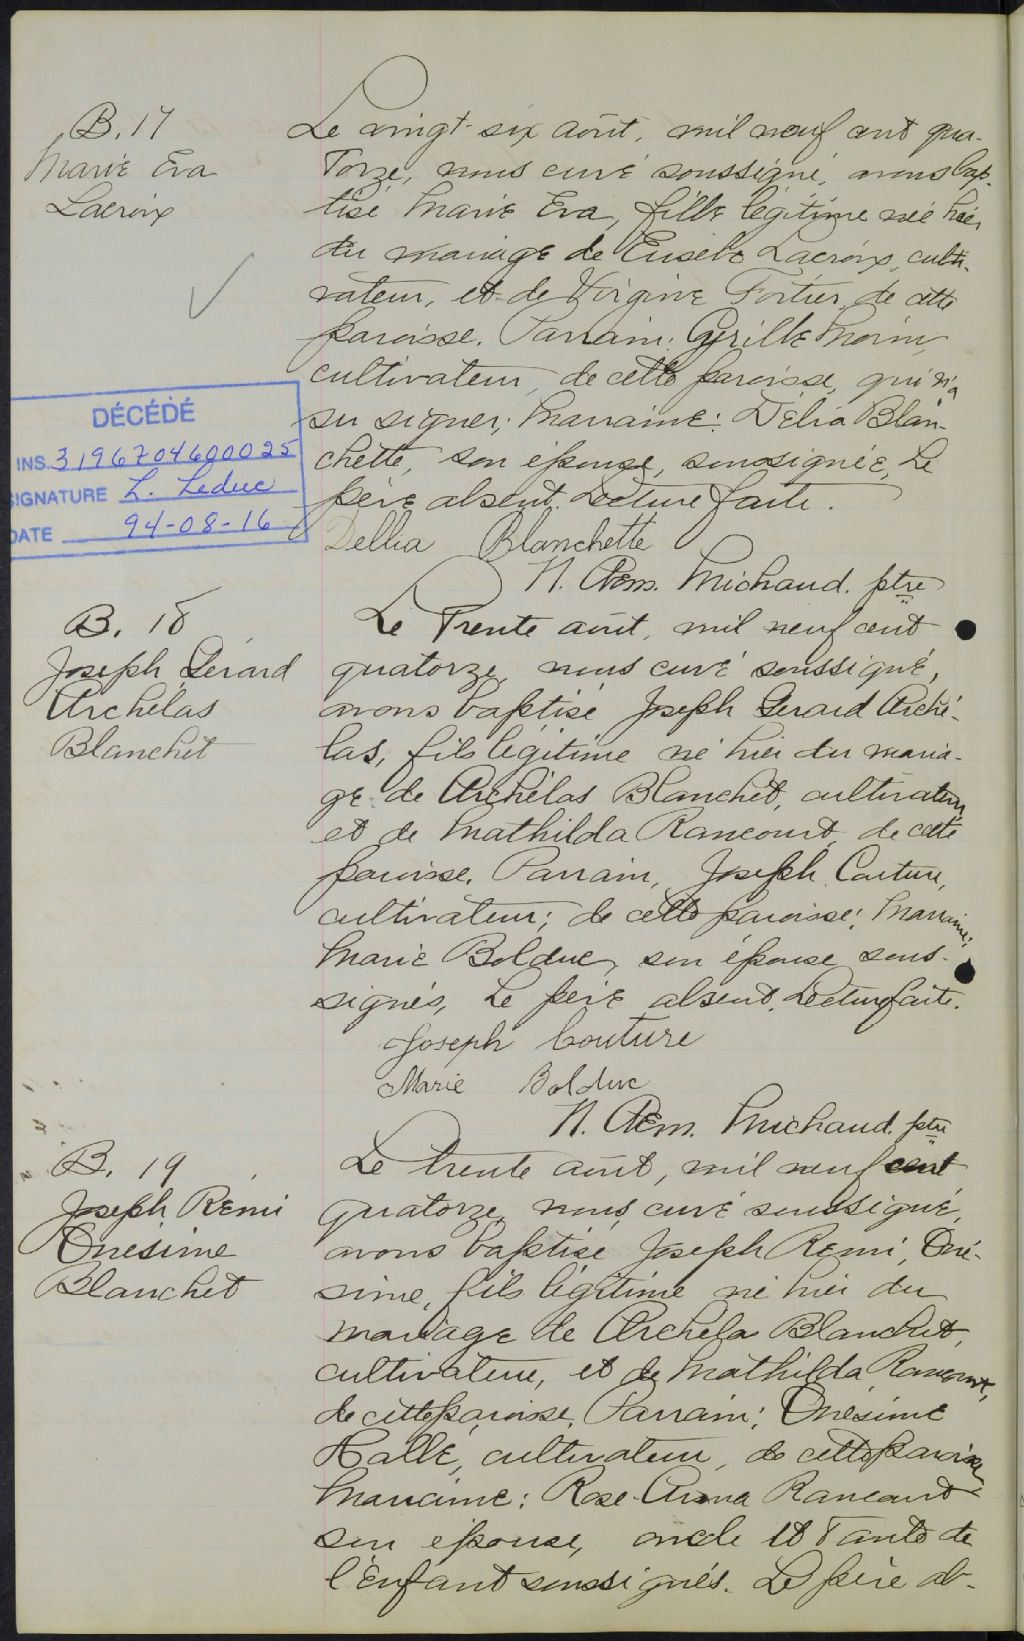 B. 17
Marie Eva
Lacroix
Le vingt-six août, mil neuf cent qua-
torze, nous curé soussigné, avons bap-
tisé Marie Eva, fille légitime née hier
du mariage de Eusèbe Lacroix, culti-
vateur, et de Virginie Fortier, de cette
paroisse. Parrain: Cyrille Morin,
cultivateur, de cette paroisse, qui n'a
su signer; Marraine: Délia Blan-
chette, son épouse, soussignée, Le
père absent. Lecture faite.
Dellia Blanchette
N. Rém. Michaud. ptre
DÉCÉDÉ
INS. 3196704600025
SIGNATURE L. Leduc
DATE 94-08-16
B. 18
Joseph Gérard
Archélas
Blanchet
Le Trente août, mil neuf cent
quatorze, nous curé soussigné,
avons baptisé Joseph Gerard Arché-
las, fils légitime né hier du maria-
ge de Archélas Blanchet, cultivateur
et de Mathilda Rancourt, de cette
paroisse. Parrain, Joseph Couture,
cultivateur; de cette paroisse; Marraine;
Marie Bolduc, son épouse sous-
signés, Le père absent. Lecture faite.
Joseph Couture
Marie Bolduc
N. Rém. Michaud. ptre
B. 19
Joseph Rémi
Onesime
Blanchet
Le trente août, mil neuf cent
quatorze, nous curé soussigné,
avons baptisé Joseph Remi, Oné-
sime, fils légitime né hier du
mariage de Archela Blanchet,
cultivateur, et de Mathilda Rancourt,
de cette paroisse. Parrain; Onésime
Hallé, cultivateur, de cette paroisse,
Marraine: Rose-Anna Rancourt
son épouse, oncle et Tante de
l'Enfant soussignés. Le père ab-